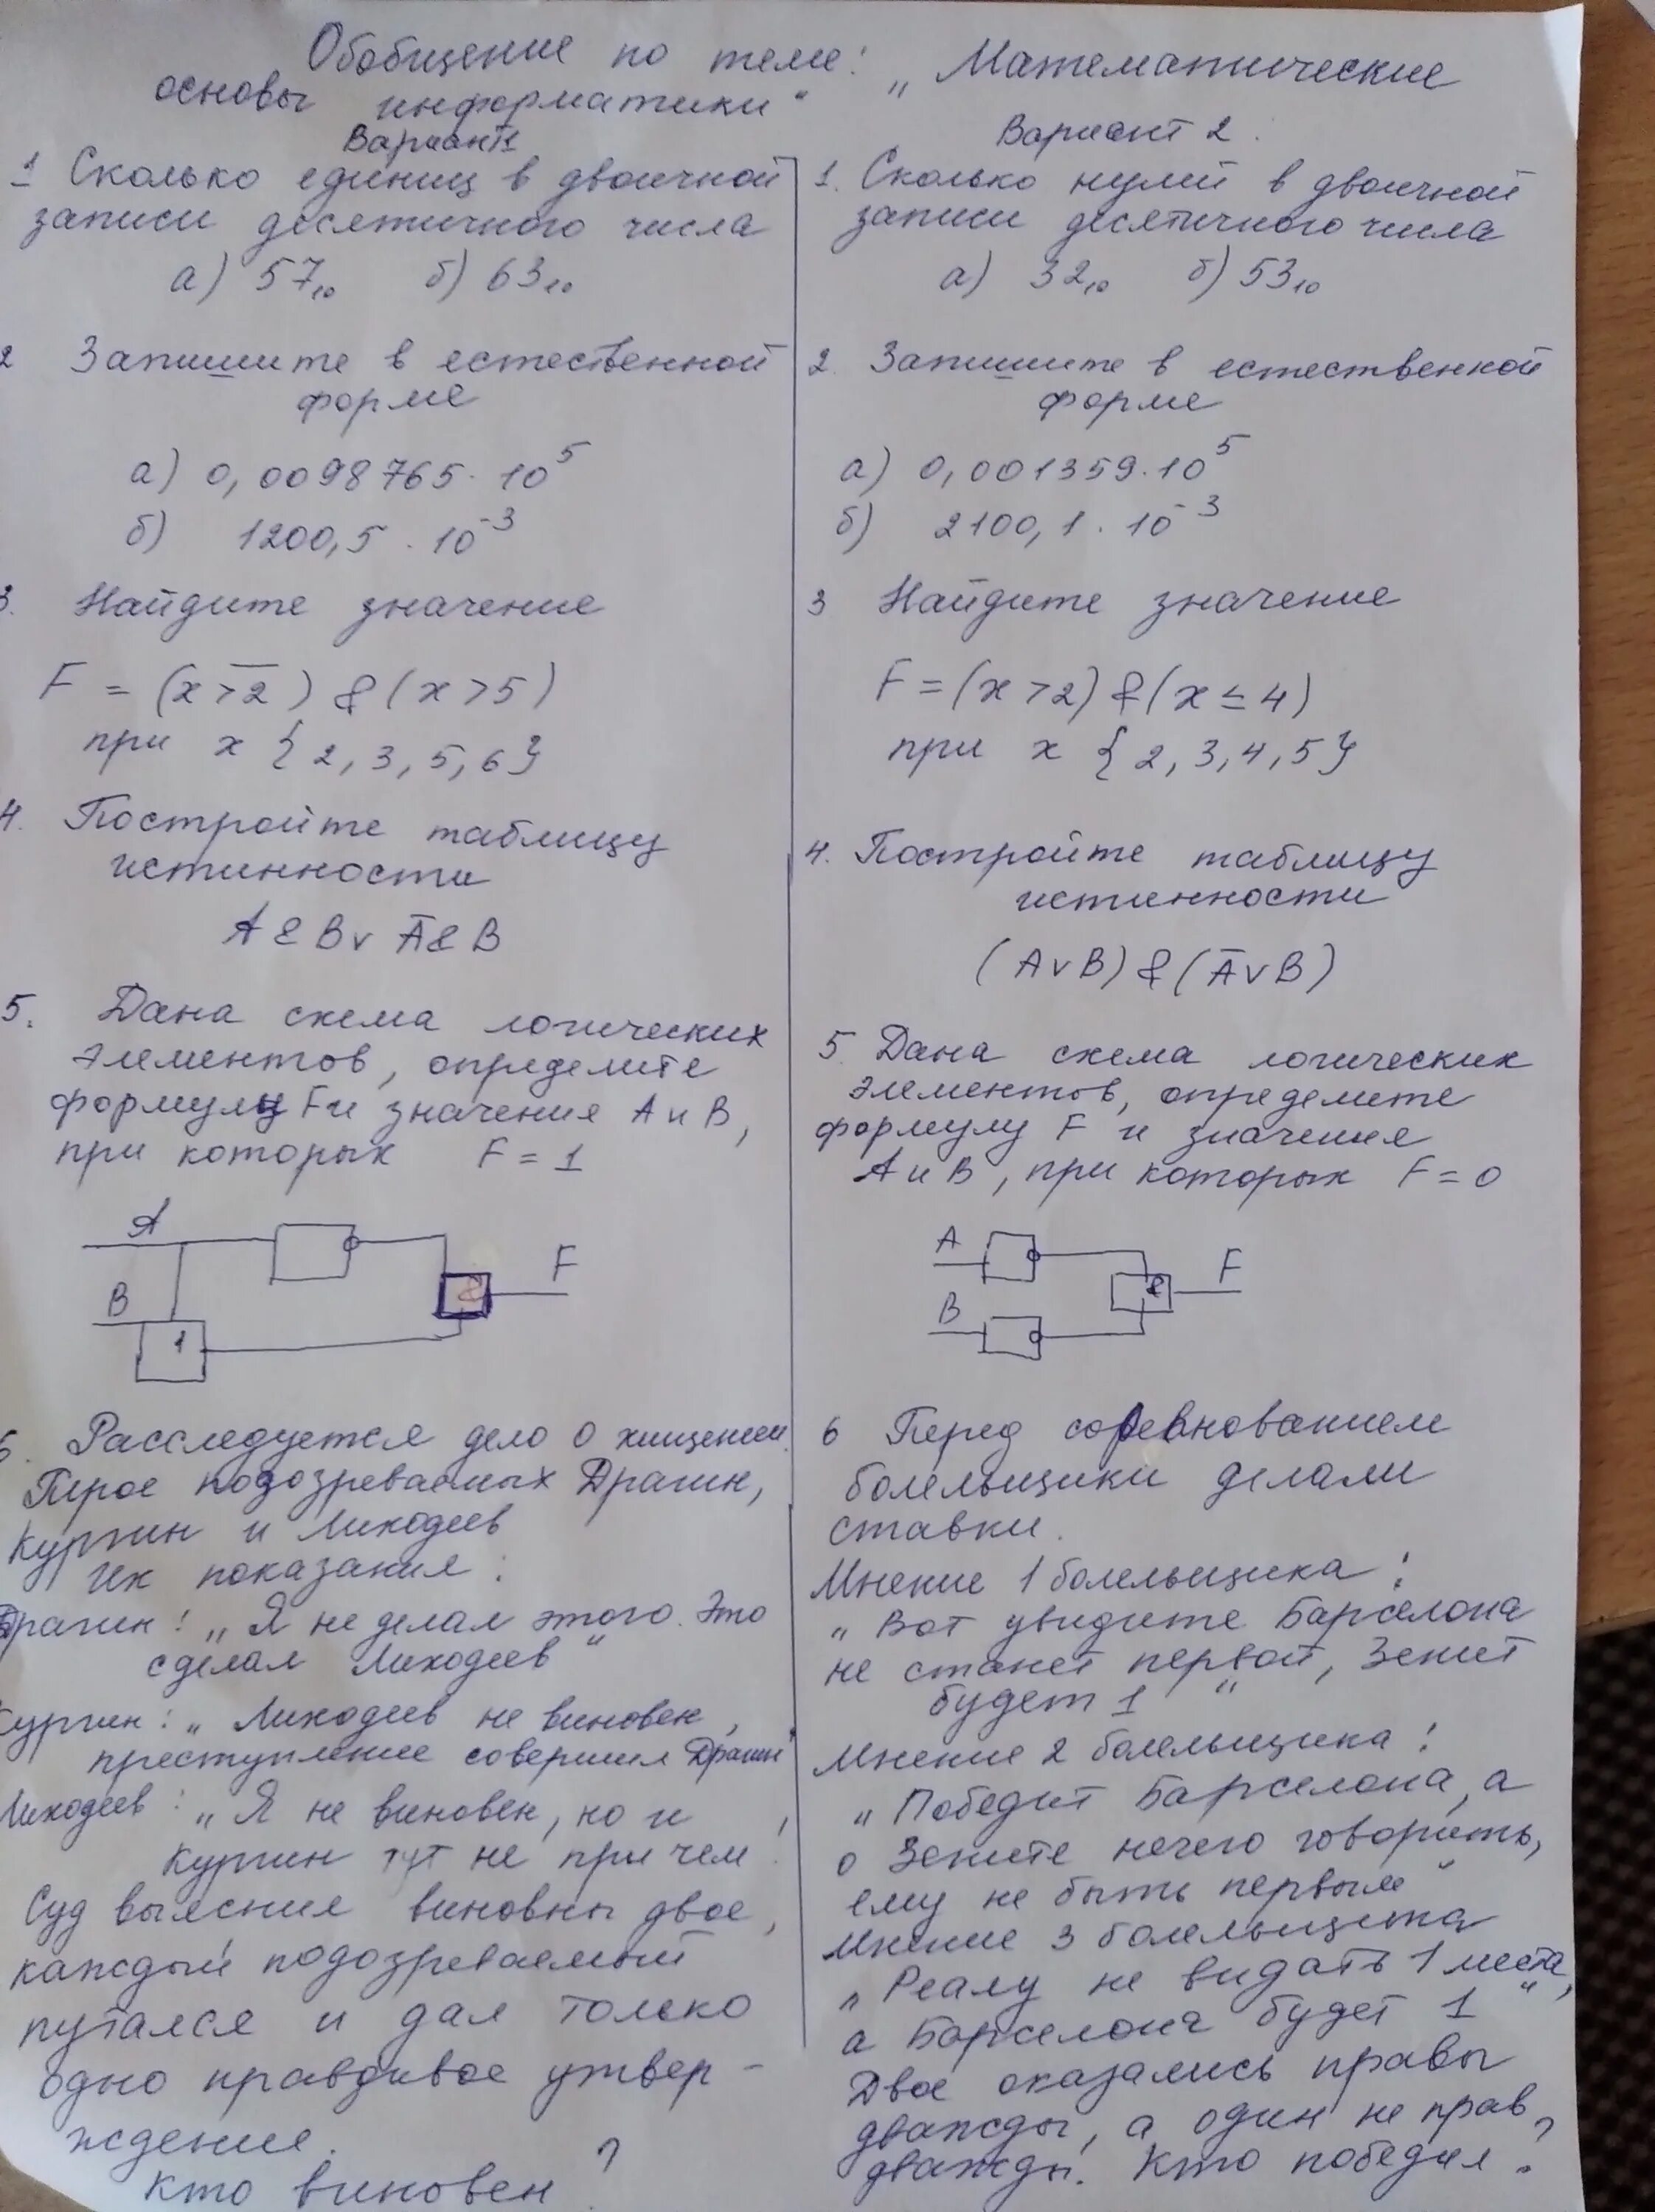 Обобщение по теме: „Математические
основы информатики“
Вариант 1
1 Сколько единиц в двоичной
записи десятичного числа
а) 57₁₀ б) 63₁₀
2 Запишите в естественной
форме
а) 0,0098765·10⁵
б) 1200,5·10⁻³
3. Найдите значение
F = (x̅ ̅>̅ ̅2̅) & (x>5)
при x {2,3,5,6}
4. Постройте таблицу
истинности
A & B v A̅ & B
5. Дана схема логических
элементов, определите
формулу F и значения А и В,
при которых F = 1
A
B
1
&
F
6. Расследуется дело о хищении.
Трое подозреваемых Драгин,
Кургин и Лиходеев
Их показания:
Драгин: „Я не делал этого. Это
сделал Лиходеев“
Кургин: „Лиходеев не виновен,
преступление совершил Драгин“
Лиходеев: „Я не виновен, но и
Кургин тут не при чем!
Суд выяснил виновны двое,
каждый подозреваемый
путался и дал только
одно правдивое утвер-
ждение.
Кто виновен?
Вариант 2.
1. Сколько нулей в двоичной
записи десятичного числа
а) 32₁₀ б) 53₁₀
2. Запишите в естественной
форме
а) 0,001359·10⁵
б) 2100,1·10⁻³
3 Найдите значение
F = (x>2) & (x≤4)
при x {2,3,4,5}
4. Постройте таблицу
истинности
(A v B) & (A̅ v B)
5. Дана схема логических
элементов, определите
формулу F и значения
А и В, при которых F = 0
A
B
&
F
6 Перед соревнованием
болельщики делали
ставки.
Мнение 1 болельщика:
„Вот увидите Барселона
не станет первой, Зенит
будет 1“
Мнение 2 болельщика:
„Победит Барселона, а
о Зените нечего говорить,
ему не быть первым“
Мнение 3 болельщика
„Реалу не видать 1 места,
а Барселона будет 1“
Двое оказались правы
дважды, а один не прав
дважды. Кто победил?